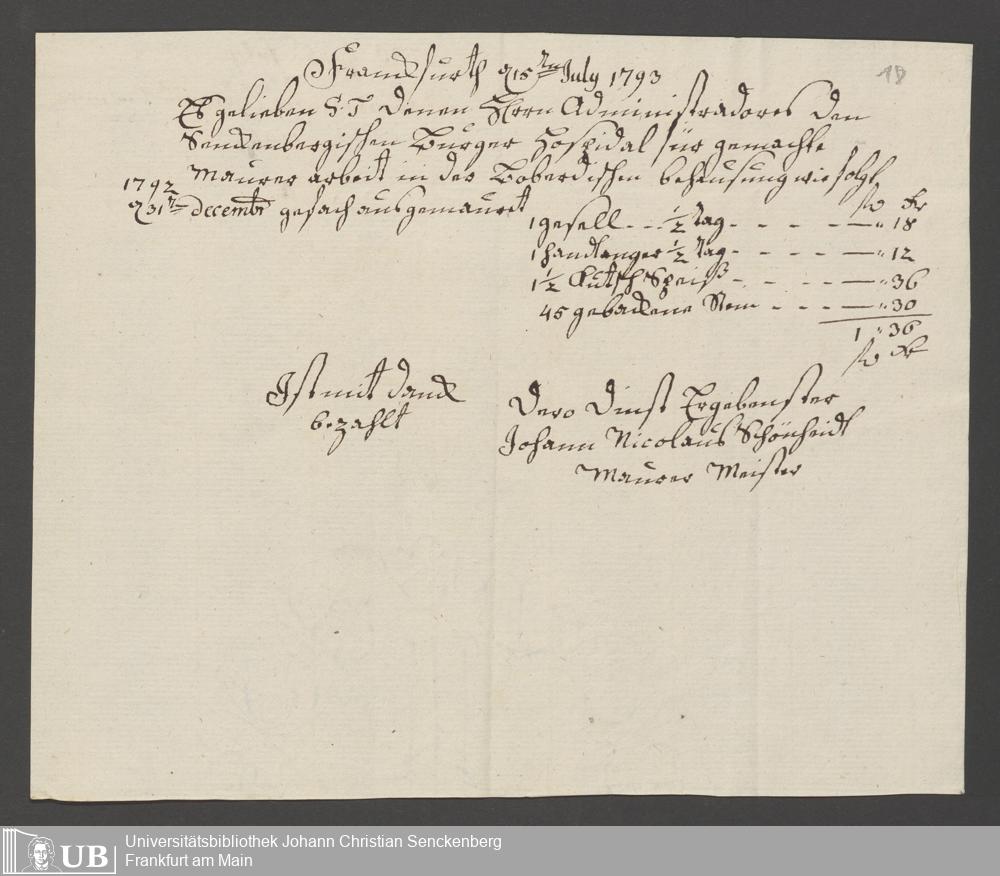 Franckfurth d 15ten July 1793
18
Es gelieben S: T: denen Herrn Administradores den
Senckenbergischen Burger Hospidal für gemachte
Maurer arbeit in der behausung wie folgt
1792
d 31ten decembr gefach ausgemauret
fl Kr
1 gesell - - - ½ tag - - - - — " 18
1 handlanger ½ tag - - - - — " 12
1½ Kutsch Speiß - - - - — " 36
45 gebackene Stein - - - — " 30
1 " 36
fl Kr
Ist mit danck
bezahlt
Dero dinst Ergebenster
Johann Nicolaus Schönheidt
Maurer Meister
UB
Universitätsbibliothek Johann Christian Senckenberg
Frankfurt am Main